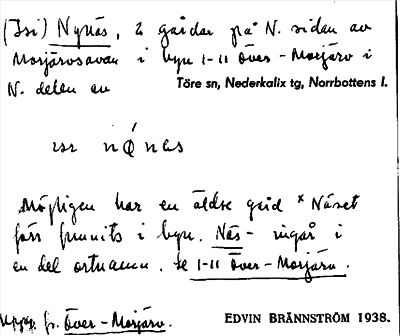 (Isi) Nynäs, 2 gårdar på N. sidan av
Morjärvsavan i byn 1-11 Över-Morjärv i
N. delen av Töre sn, Nederkalix tg, Norrbottens l.
isi
Möjligen har en äldre gård * Näset
förr funnits i byn. Näs- ingår i
en del ortnamn. Se 1-11 Över-Morjärv.
Uppg. fr. Över-Morjärv.
EDVIN BRÄNNSTRÖM 1938.